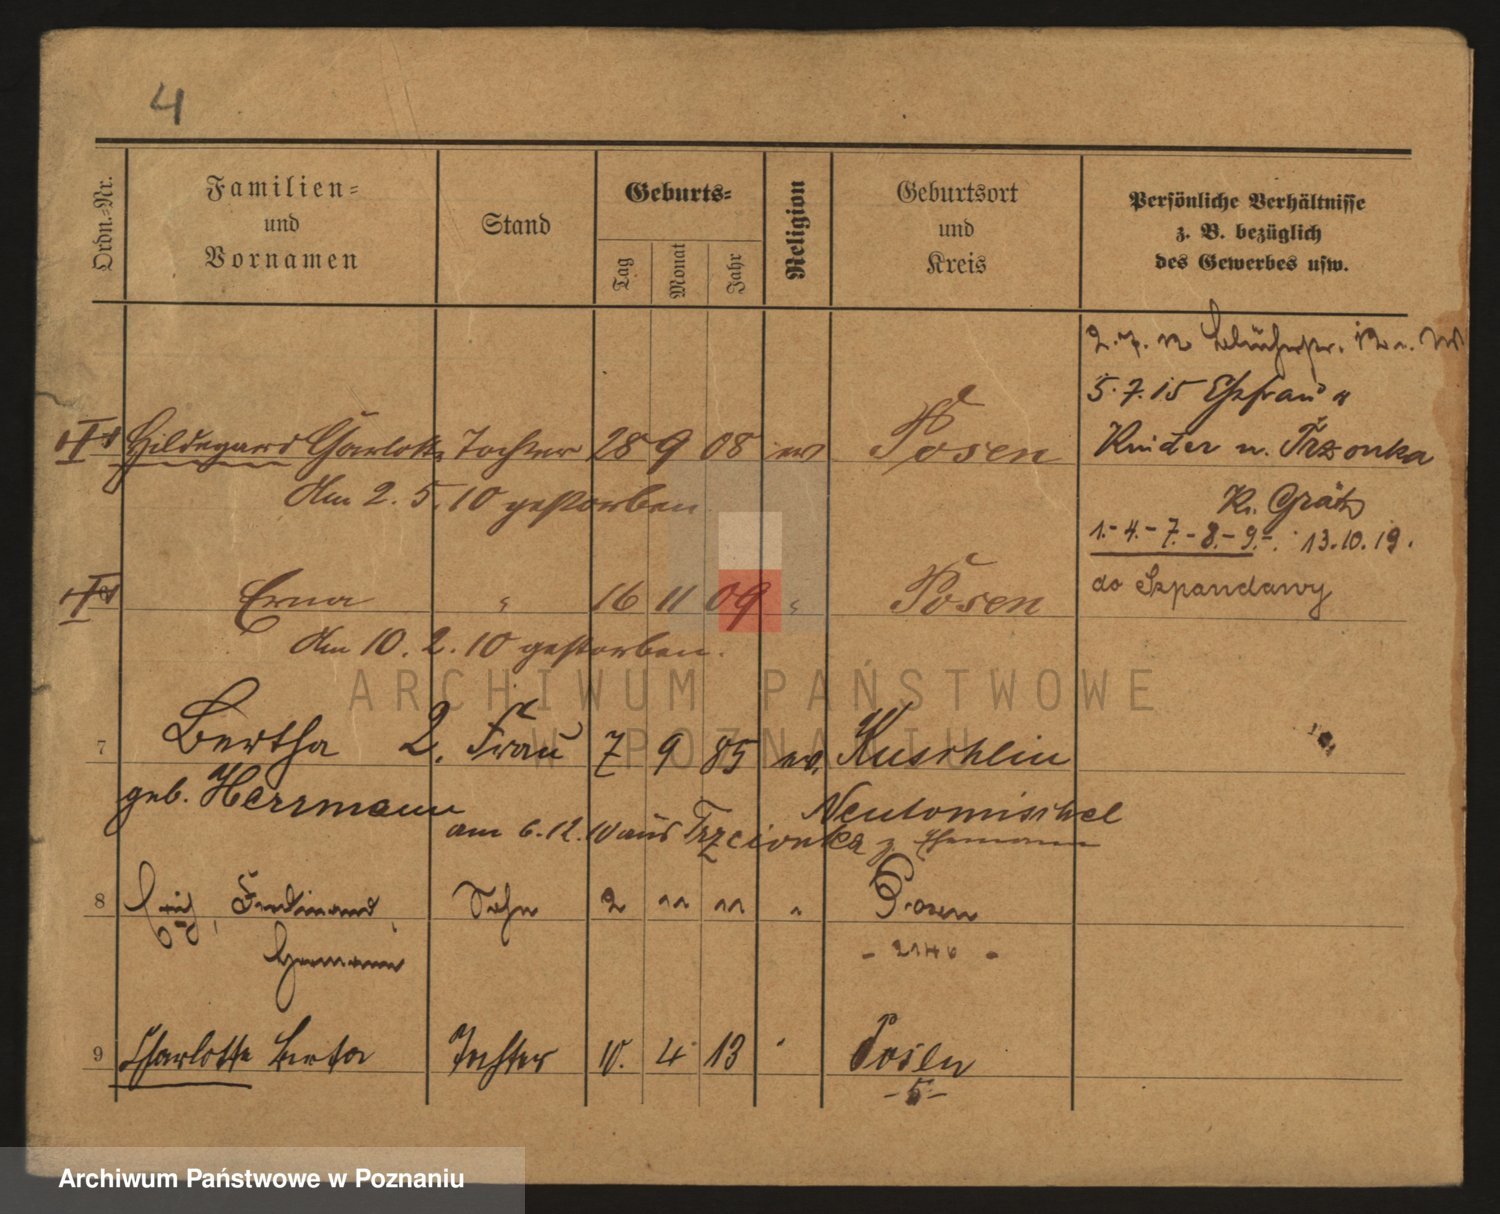 4
Ordn.-Nr.
Familien-
und
Vornamen
Stand
Geburts-
Tag
Monat
Jahr
Religion
Geburtsort
und
Kreis
Persönliche Verhältnisse
z. B. bezüglich
des Gewerbes usw.
2.7.12 Blücherstr.
5.7.15 Ehefrau u
Hildegard Charlotte Tochter 28 9 08 ev Posen
Kinder n. Trzonka
Am 2. 5. 10 gestorben.
Kr. Grätz
1.-4.-7.-8.-9.-. 13.10.19.
do Szpandawy
Erna " 16 11 09 " Posen
Am 10. 2. 10 gestorben.
ARCHIWUM PAŃSTWOWE
W POZNANIU
7 Bertha 2. Frau 7 9 85 ev. Kuschlin
geb. Herrmann
Neutomischel
am 6.12.10 aus Trzcionka z Ehemann
8 Erich, Ferdinand, Sohn 2 11 11 " Posen
Hermann
- 2146 -
9 Charlotte Berta Tochter 10. 4 13 " Posen
-5-
Archiwum Państwowe w Poznaniu